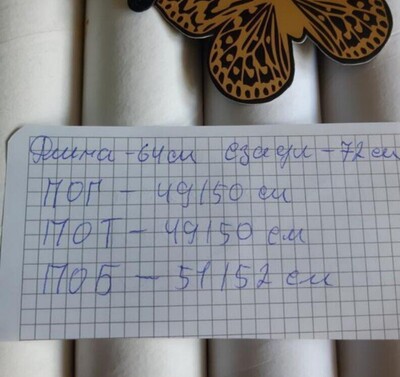 Длина - 64 см сзади - 72 см
ПОГ - 49/50 см
ПОТ - 49/50 см
ПОБ - 51/52 см